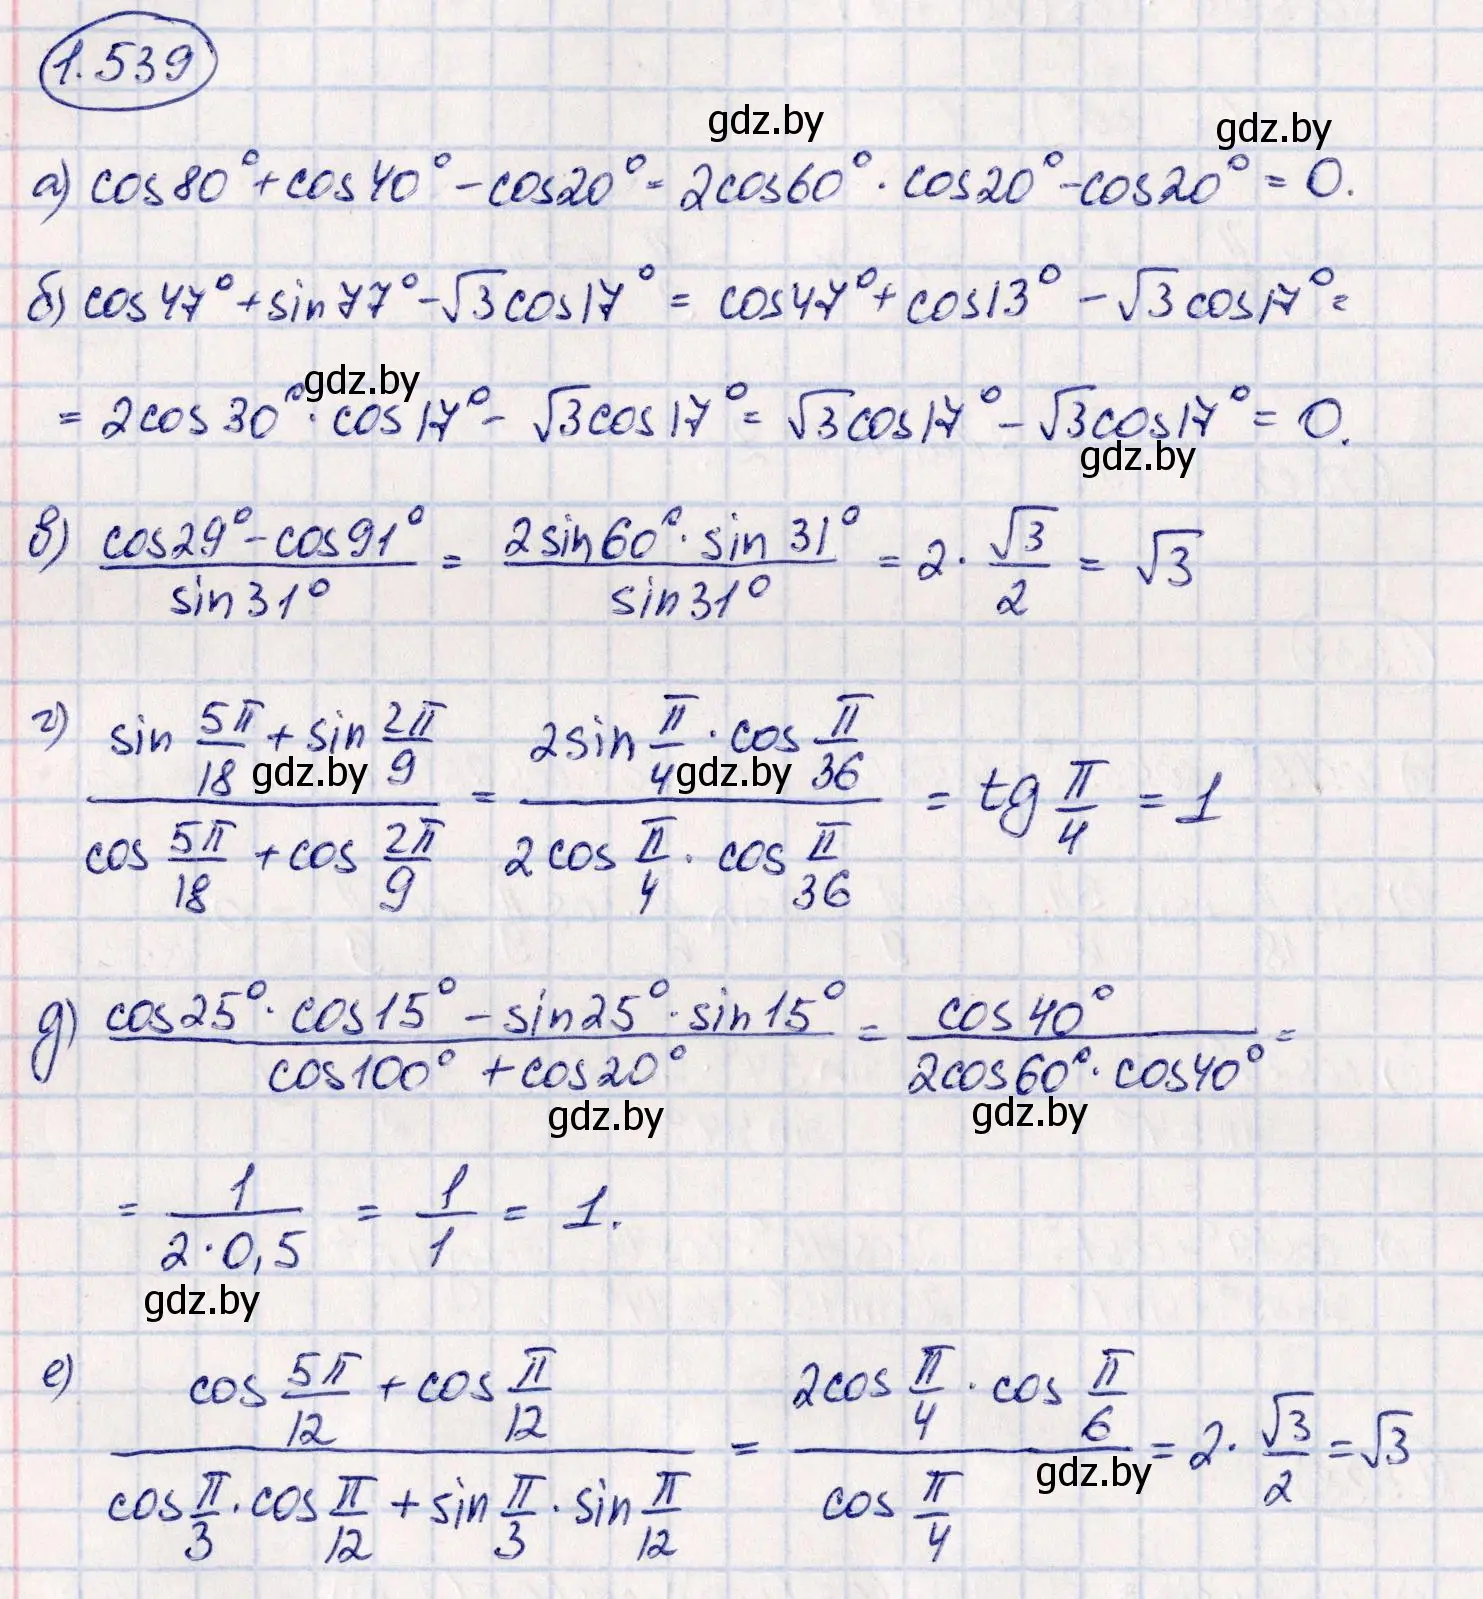 1.539
gdz.by gdz.by
а) cos80° + cos40° - cos20° = 2cos60° · cos20° - cos20° = 0.
б) cos47° + sin77° - √3cos17° = cos47° + cos13° - √3cos17° =
gdz.by
= 2cos30° · cos17° - √3cos17° = √3cos17° - √3cos17° = 0.
gdz.by
в) (cos29° - cos91°)/(sin31°) = (2sin60° · sin31°)/(sin31°) = 2 · √3/2 = √3
г) (sin 5π/18 + sin 2π/9)/(cos 5π/18 + cos 2π/9) = (2sin π/4 · cos π/36)/(2cos π/4 · cos π/36) = tg π/4 = 1
gdz.by gdz.by
д) (cos25° · cos15° - sin25° · sin15°)/(cos100° + cos20°) = (cos40°)/(2cos60° · cos40°) =
gdz.by gdz.by
= 1/(2·0,5) = 1/1 = 1.
gdz.by
е) (cos 5π/12 + cos π/12)/(cos π/3 · cos π/12 + sin π/3 · sin π/12) = (2cos π/4 · cos π/6)/(cos π/4) = 2 · √3/2 = √3
gdz.by